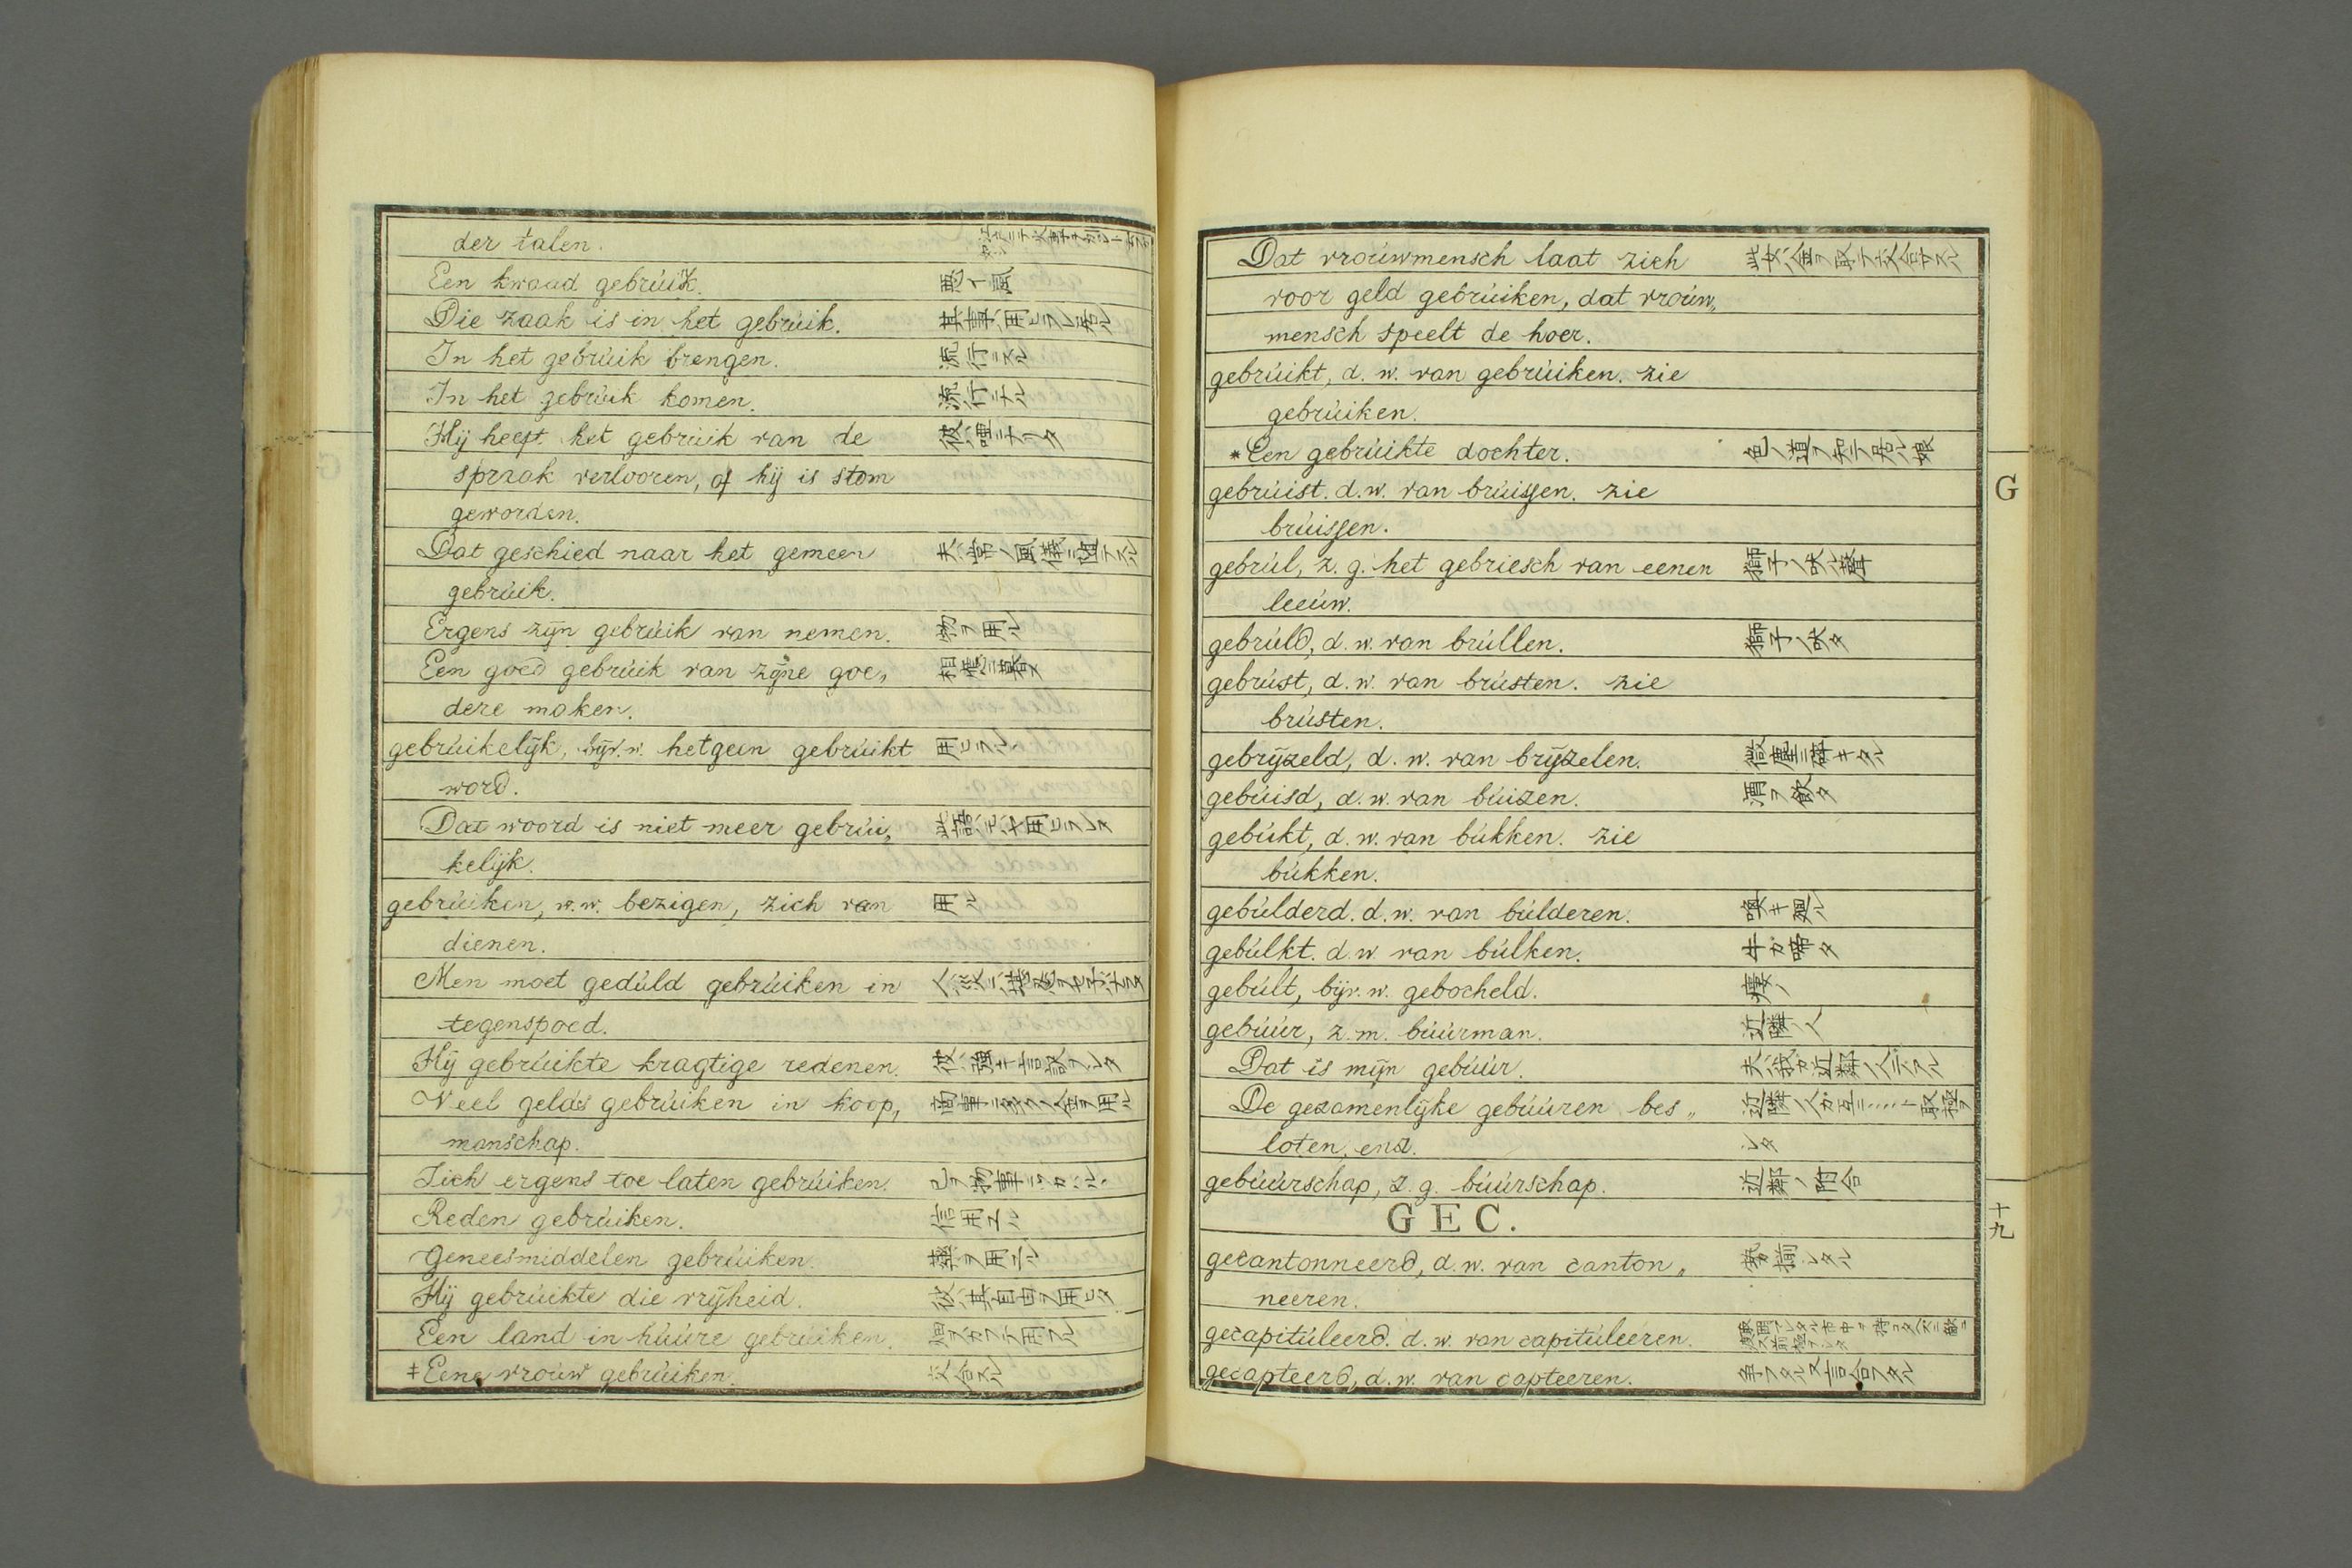 der talen.
Een kwaad gebrúik. 悪イ風
Die zaak is in het gebrúik. 其事ハ用ヒラレ居ル
In het gebrúik brengen. 流行ニスル
In het gebrúik komen. 流行ニナル
Hij heeft het gebrúik van de 彼ハ唖ニナリタ
spraak verlooren, of hij is stom
geworden.
Dat geschied naar het gemeen 夫ハ常ノ風儀ニ従テスル
gebrúik.
Ergens zijn gebrúik van nemen. 物ヲ用ル
Een goed gebrúik van zijne goe„ 相應ニ暮ス
dere maken.
gebrúikelijk, bijv. w. hetgeen gebrúikt 用ヒラルヽ
word.
Dat woord is niet meer gebrúi„ 此語ハモハヤ用ヒラレヌ
kelijk.
gebrúiken, w. w. bezigen, zich van 用ル
dienen.
Men moet gedúld gebrúiken in
tegenspoed.
Hij gebrúikte kragtige redenen. 彼ハ強キ言訳ヲシタ
Veel gelds gebrúiken in koop„ 商事ニ多クノ金ヲ用ル
manschap.
Zich ergens toe laten gebrúiken. 己ヲ物事ニツカハルヽ
Reden gebrúiken. 信用スル
Geneesmiddelen gebrúiken. 薬ヲ用ル
Hij gebrúikte die vrijheid. 彼ハ其自由ヲ用ヒタ
Een land in húúre gebrúiken.
‡ Eene vroúw gebrúiken. 交合スル
Dat vroúwmensch laat zich 此女ハ金ヲ取テ交合サスル
voor geld gebrúiken, dat vroúw„
mensch speelt de hoer.
gebrúikt, d. w. van gebrúiken. zie
gebrúiken.
* Een gebrúikte dochter. 色ノ道ヲ知テ居ル娘
gebrúist. d. w. van brúissen. zie
brúissen.
gebrúl, z. g. het gebriesch van eenen 獅子ノ吠ル聲
leeúw.
gebrúld, d. w. van brúllen. 獅子ノ吠タ
gebrúst, d. w. van brústen. zie
brústen.
gebrijzeld, d. w. van brijzelen. 微塵ニ碎キタル
gebúisd, d. w. van búizen. 酒ヲ飲タ
gebúkt, d. w. van búkken. zie
búkken.
gebúlderd. d. w. van búlderen. 喚キ廻ル
gebúlkt. d. w van búlken. 牛ガ啼タ
gebúlt, bijv. w. gebocheld.
gebúúr, z. m. búúrman. 近隣ノ人
Dat is mijn gebúúr. 夫ハ我ガ近鄰ノ人デアル
De gezamenlijke gebúúren bes„ 近隣ノ人ガ互ニ……ト取極ヲ
loten, enz. シタ
gebúúrschap, z. g. búúrschap. 近鄰ノ附合
GEC.
gecantonneerd, d. w. van canton„
neeren.
gecapitúleerd. d. w. van capitúleeren.
gecapteerd, d. w. van capteeren.
G
十九